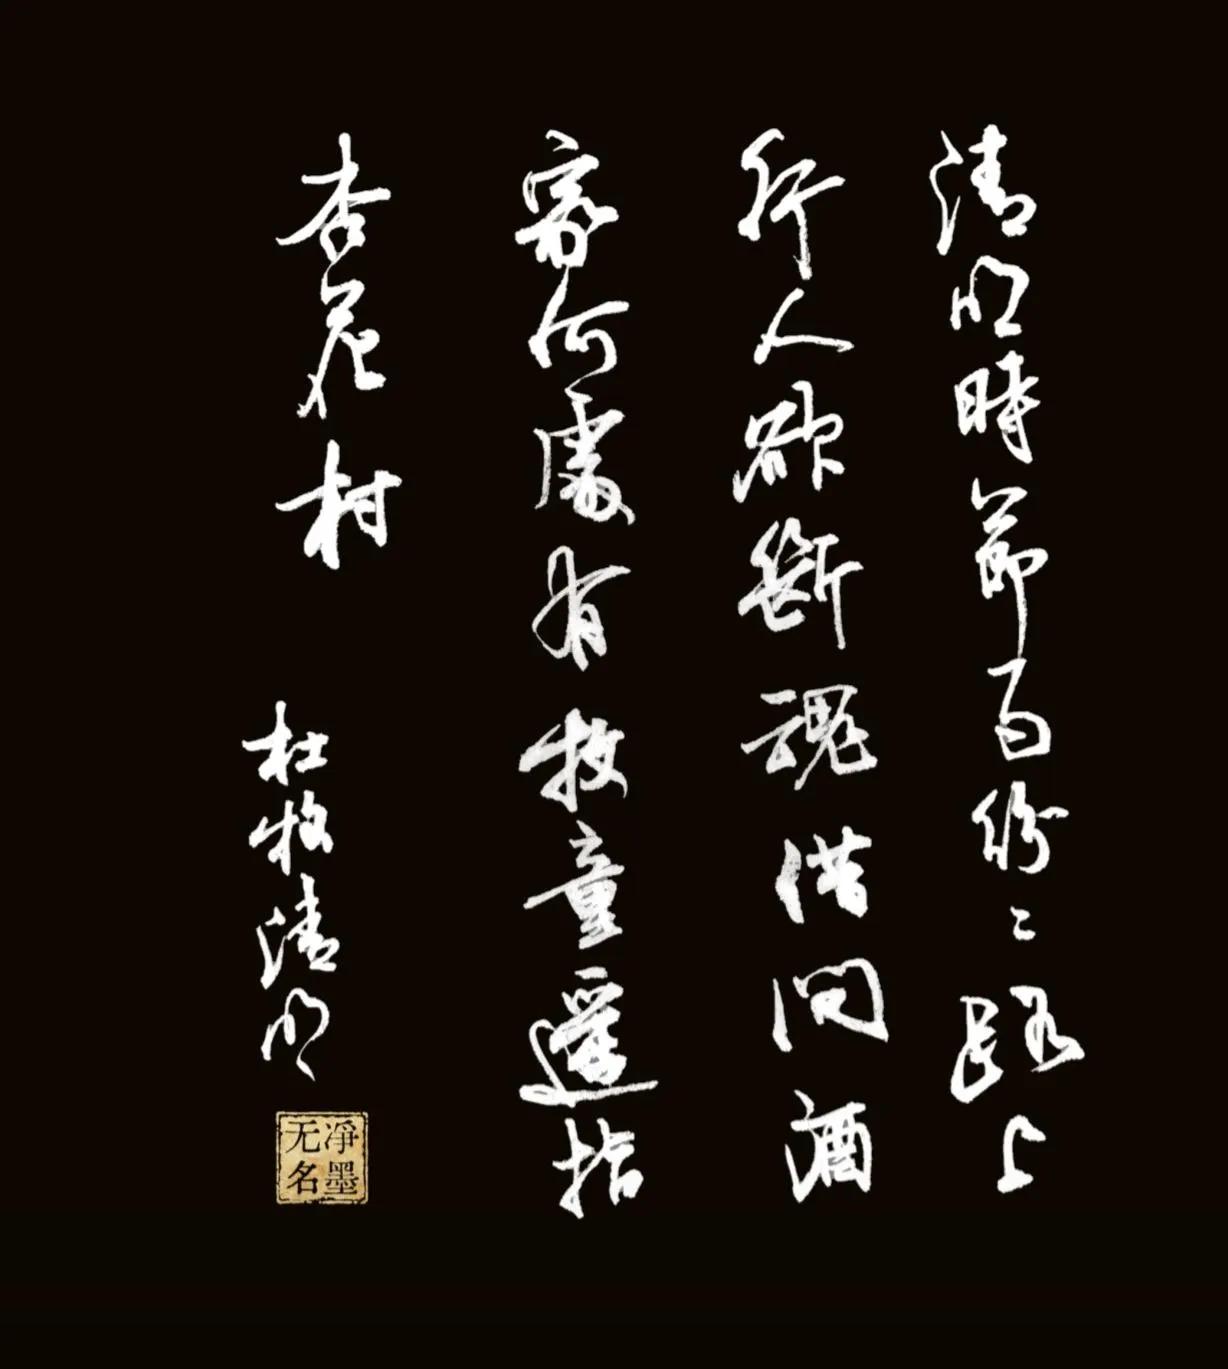 清明時節百份〻路上
行人欲斷魂借问酒
家何處有牧童遥指
杏花村
杜牧清明
净墨无名